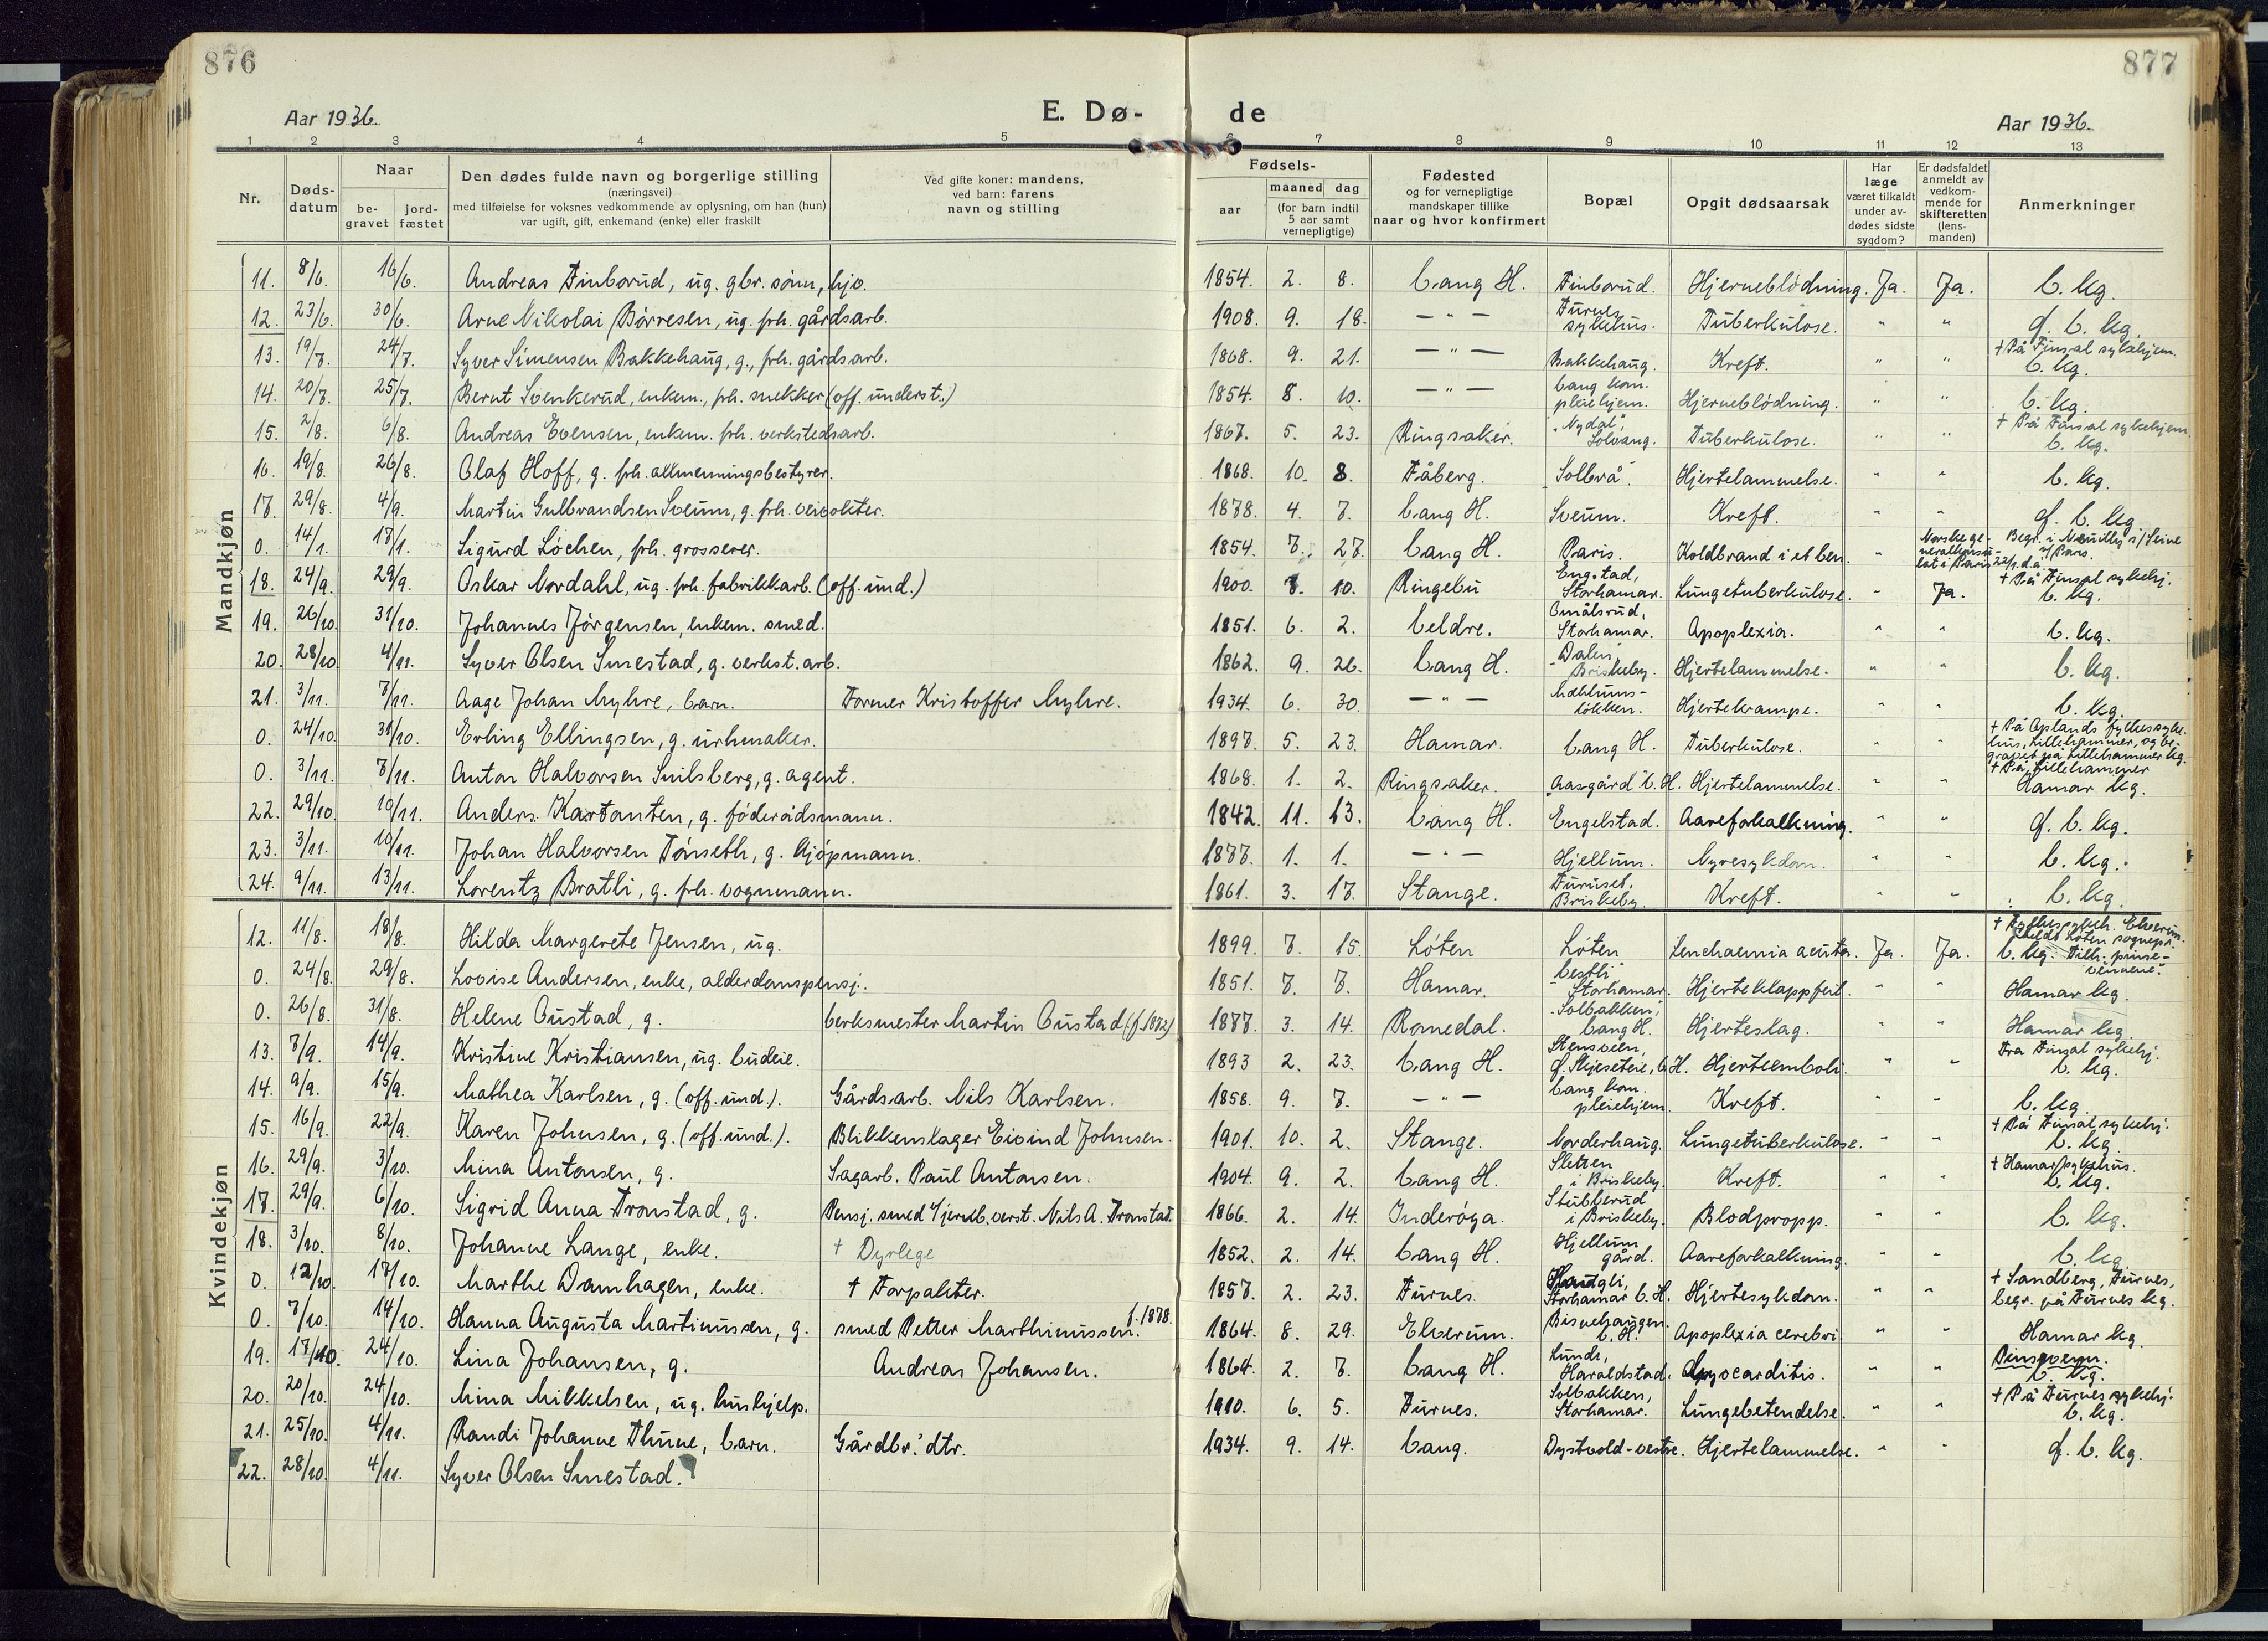 876
877
Aar 1936.
E. Dø-
de
Aar 1936.
1 2 3 4 5 6 7 8 9 10 11 12 13
Nr.
Døds-
datum
Naar
be-
gravet
jord-
fæstet
Den dødes fulde navn og borgerlige stilling
(næringsvei)
med tilføielse for voksnes vedkommende av oplysning, om han (hun)
var ugift, gift, enkemand (enke) eller fraskilt
Ved gifte koner: mandens,
ved barn: farens
navn og stilling
Fødsels-
aar
maaned dag
(for barn indtil
5 aar samt
vernepligtige)
Fødested
og for vernepligtige
mandskaper tillike
naar og hvor konfirmert
Bopæl
Opgit dødsaarsak
Har
læge
været tilkaldt
under av-
dødes sidste
sygdom?
Er dødsfaldet
anmeldt av
vedkom-
mende for
skifteretten
(lens-
manden)
Anmerkninger
Mandkjøn
11. 8/6. 16/6. Andreas Finborud, ug. gbr. sønn, hjo. 1854. 2. 8. Vang H. Finborud. Hjerneblödning. Ja. Ja. V. kg.
12. 23/6. 30/6. Arne Nikolai Börresen, ug. fhv. gårdsarb. 1908. 9. 18. — " — Furnes sykehus. Tuberkulose. " " q. V. kg.
13. 19/7. 24/7. Syver Simensen Bakkehaug, g., fhv. gårdsarb. 1868. 9. 21. — " — Bakkehaug. Kreft. " " + På Finsal sykehjem. V. kg.
14. 20/7. 25/7. Bernt Svenkerud, enkem., fhv. snekker (off. underst.) 1854. 8. 10. — " — Vang kom. pleiehjem. Hjerneblödning. " " V. kg.
15. 2/8. 6/8. Andreas Evensen, enkem. fhv. verkstedsarb. 1867. 5. 23. Ringsaker. "Nydal", Solvang. Tuberkulose. " " + På Finsal sykehjem. V. kg.
16. 19/8. 26/8. Olaf Hoff, g. fhv. allmenningsbestyrer. 1868. 10. 8. Fåberg. "Solbrå". Hjertelammelse. " " V. kg.
17. 29/8. 4/9. Martin Gulbrandsen Sveum, g. fhv. veivokter. 1878. 4. 7. Vang H. Sveum. Kreft. " " q. V. kg.
0. 14/1. 17/1. Sigurd Löchen, fhv. grosserer. 1854. 7. 27. Vang H. Paris. Koldbrand i et ben. " Norske ge-neralkonsu-lat i Paris 22/1. d.å. Begr. i Neuilly s/Seine v/ Paris.
18. 24/9. 29/9. Oskar Nordahl, ug. fhv. fabrikkarb. (off. und.) 1900. 7. 10. Ringebu Engstad, Storhamar. Lungetuberkulose. " Ja. + På Finsal sykehj. V. kg.
19. 26/10. 31/10. Johannes Jörgensen, enkem. smed. 1851. 6. 2. Veldre. Omålsrud, Storhamar. Apoplexia. " " V. kg.
20. 28/10. 4/11. Syver Olsen Smestad, g. verkst. arb. 1862. 9. 26. Vang H. "Dalen" Briskeby. Hjertelammelse. " " V. kg.
21. 3/11. 7/11. Aage Johan Myhre, barn. Former Kristoffer Myhre. 1934. 6. 30. — " — Mæhlums-lökken. Hjertekrampe. " " V. kg.
0. 24/10. 31/10. Erling Ellingsen, g. urhmaker. 1897. 5. 23. Hamar. Vang H. Tuberkulose. " " + På Oplands fylkessyke-hus, Lillehammer, og be-gravet på Lillehammer kg.
0. 3/11. 7/11. Anton Halvorsen Snilsberg, g. agent. 1868. 1. 2. Ringsaker. "Aasgård" V. H. Hjertelammelse. " " + På Lillehammer Hamar kg.
22. 29/10. 10/11. Anders Kartanten, g. föderådsmann. 1842. 11. 13. Vang H. Engelstad. Aareforkalkning. " " q. V. kg.
23. 3/11. 10/11. Johan Halvorsen Tönseth, g. kjöpmann. 1877. 1. 1. — " — Hjellum. Nyresykdom. " " V. kg.
24. 9/11. 13/11. Lorentz Bratli, g. fhv. vognmann. 1861. 3. 17. Stange. Furuset, Briskeby. Kreft. " " V. kg.
Kvindekjøn
12. 11/8. 18/8. Hilda Margerete Jensen, ug. 1899. 7. 15. Löten Löten Leuchaemia acuta. Ja. Ja. + Fylkessykeh. Elverum. Löten sognepr. V. kg. Tilh. pinse-vennene.
0. 24/8. 29/8. Lovise Andersen, enke, alderdomspensj. 1851. 7. 7. Hamar. Vestli Storhamar. Hjerteklappfeil. " " Hamar kg.
0. 26/8. 31/8. Helene Gustad, g. Verksmester Martin Gustad (f. 1872) 1877. 3. 14. Romedal. "Solbakken", Vang H. Hjerteslag. " " Hamar kg.
13. 7/9. 14/9. Kristine Kristiansen, ug. budeie. 1893 2. 23. Vang H. Stensveen, q. Skjeseteie, V. H. Hjerteemboli. " " Fra Finsal sykehj. V. kg.
14. 9/9. 15/9. Mathea Karlsen, g. (off. und.). Gårdsarb. Nils Karlsen. 1858. 9. 7. — " — Vang kom. pleiehjem. Kreft. " " V. kg.
15. 16/9. 22/9. Karen Johnsen, g. (off. und.). Blikkenslager Eivind Johnsen. 1901. 10. 2. Stange. Norderhaug. Lungetuberkulose. " " + På Finsal sykehj. V. kg.
16. 29/9. 3/10. Mina Antonsen, g. Sagarb. Paul Antonsen. 1904. 9. 2. Vang H. Sletten i Briskeby. Kreft. " " + Hamar sykehus. V. kg.
17. 29/9. 6/10. Sigrid Anna Tronstad, g. Pensj. smed v/jernb. verst. Nils A. Tronstad. 1866. 2. 14. Inderöya. Stubberud i Briskeby. Blodpropp. " " V. kg.
18. 3/10. 8/10. Johanne Lange, enke. + Dyrlege 1852. 2. 14. Vang H. Hjellum gård. Aareforkalkning. " " V. kg.
0. 12/10. 17/10. Marthe Damhagen, enke. + Forpakter. 1857. 2. 23. Furnes. Haugli, Storhamar V. H. Hjertesykdom. " " + Sandberg, Furnes, begr. på Furnes kg.
0. 7/10. 14/10. Hanna Augusta Martinussen, g. smed Petter Marthinussen. f. 1878. 1864. 8. 29. Elverum. Bisnehaugen. V. H. Apoplexia cerebri " " Hamar kg.
19. 17/10. 24/10. Lina Johansen, g. Andreas Johansen. 1864. 2. 7. Vang H. Lunde, Haraldstad. Myocarditis. " " Pinsevenn. V. kg.
20. 20/10. 24/10. Mina Mikkelsen, ug. hushjelp. 1910. 6. 5. Furnes. Solbakken, Storhamar. Lungebetendelse. " " + På Furnes sykehj. V. kg.
21. 25/10. 4/11. Randi Johanne Thune, barn. Gårdbr. dtr. 1934. 9. 14. Vang. Dystvold-vestre. Hjertelammelse. " " q. V. kg.
22. 28/10. 4/11. Syver Olsen Smestad.